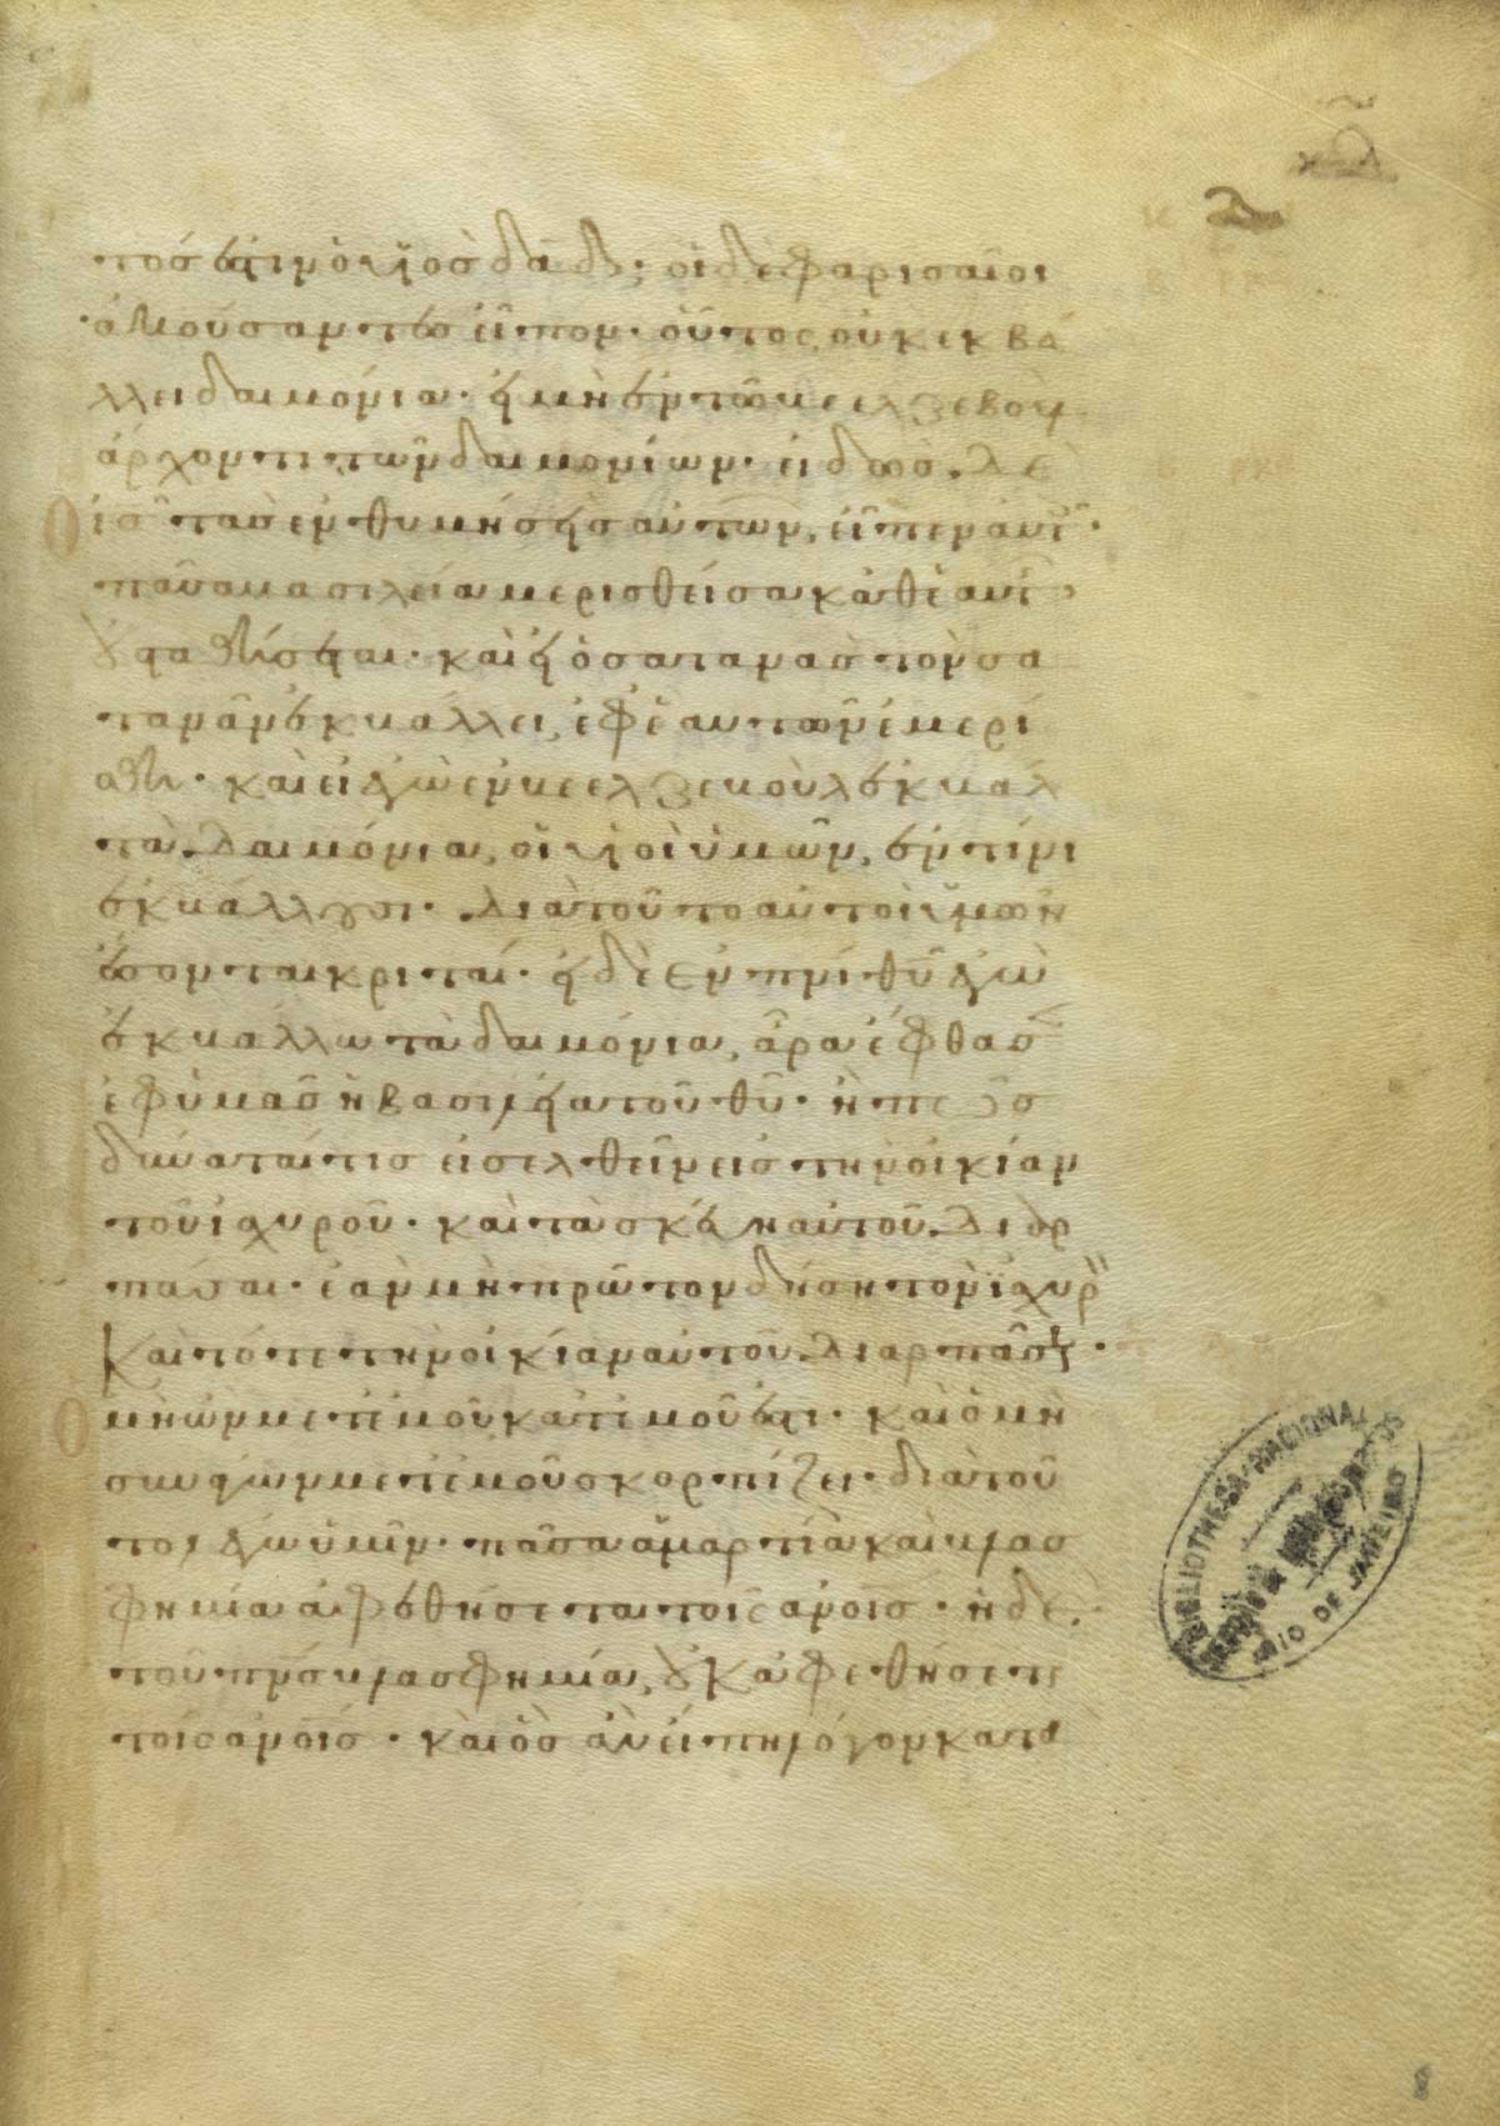 τός ἐστιν ὁ υἱὸς δαδ; οἱ δὲ φαρισαῖοι
ἀκούσαντες εἶπον· οὗτος οὐκ ἐκβά
λλει δαιμόνια· εἰ μὴ ἐν τῶ βεελζεβοὺλ
ἄρχοντι τῶν δαιμονίων· εἰδὼς δὲ
ὁ ις τὰς ἐνθυμήσεις αὐτῶν, εἶπεν αὐτοῖς·
πᾶσα βασιλεία μερισθεῖσα καθ' ἑαυτῆς
οὐ σταθήσεται· καὶ εἰ ὁ σατανᾶς τὸν σα
τανᾶν ἐκβάλλει, ἐφ' ἑαυτὸν ἐμερί
σθη· καὶ εἰ ἐγὼ ἐν βεελζεβοὺλ ἐκβάλ
τὰ δαιμόνια, οἱ υἱοὶ ὑμῶν, ἐν τίνι
ἐκβάλλουσι· διὰ τοῦτο αὐτοὶ ὑμῶν
ἔσονται κριταί· εἰ δὲ ἐν πνι θυ ἐγὼ
ἐκβάλλω τὰ δαιμόνια, ἄρα ἔφθασεν
ἐφ' ὑμᾶς ἡ βασιλεία τοῦ θυ· ἢ πῶς
δύναταί τις εἰσελθεῖν εἰς τὴν οἰκίαν
τοῦ ἰσχυροῦ· καὶ τὰ σκεύη αὐτοῦ διαρ
πάσαι· ἐὰν μὴ πρῶτον δήσῃ τὸν ἰσχυρὸν
Καὶ τότε τὴν οἰκίαν αὐτοῦ διαρπάσει·
ὁ μὴ ὢν μετ' ἐμοῦ κατ' ἐμοῦ ἐστι· καὶ ὁ μὴ
συνάγων μετ' ἐμοῦ σκορπίζει· διὰ τοῦ
το λέγω ὑμῖν· πᾶσα ἁμαρτία καὶ βλασ
φημία ἀφεθήσεται τοῖς ανοις· ἡ δὲ
τοῦ πνς βλασφημία, οὐκ ἀφεθήσεται
τοῖς ανοις· καὶ ὃς ἂν εἴπῃ λόγον κατὰ
BIBLIOTHECA NACIONAL
RIO DE JANEIRO
8